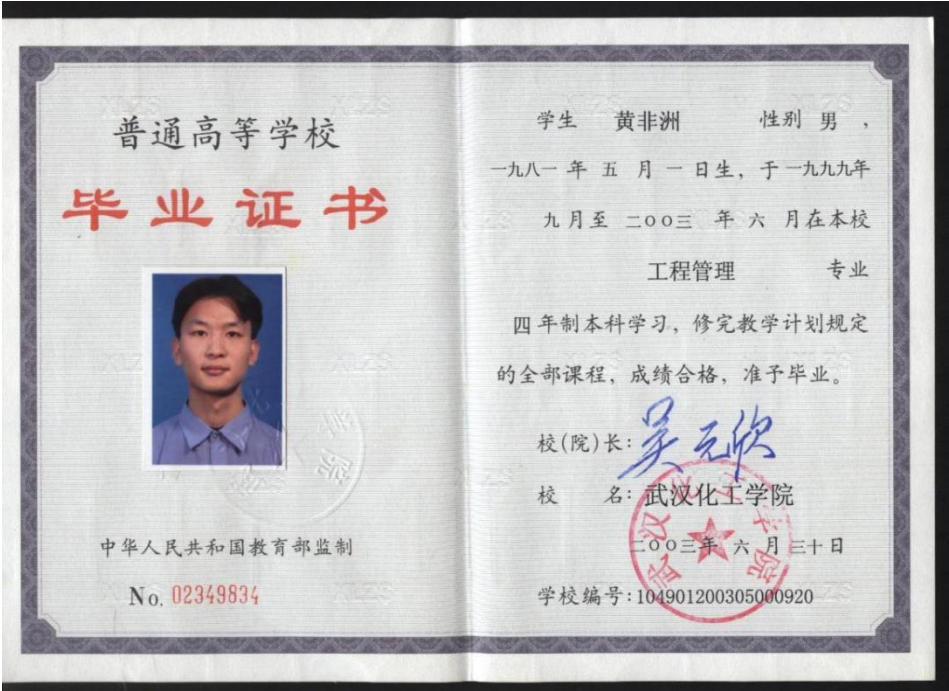 普通高等学校
毕业证书
中华人民共和国教育部监制
No. 02349834
学生 黄非洲 性别 男 ，
一九八一 年 五 月 一 日生，于 一九九九年
九 月至 二〇〇三 年 六 月在本校
工程管理 专业
四 年制本科学习，修完教学计划规定
的全部课程，成绩合格，准予毕业。
校(院)长：吴元欣
校 名：武汉化工学院
二〇〇三年 六 月 三十日
学校编号：104901200305000920
武汉化工学院